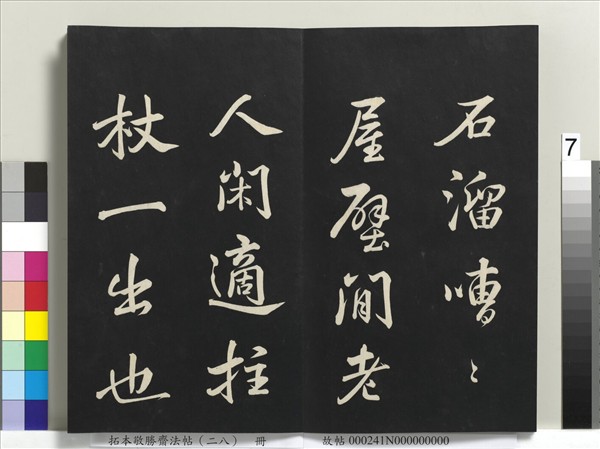 石溜嘈〻
屋壁間老
人闲適拄
杖一出也
7
拓本敬勝齋法帖（二八） 冊 故帖 000241N000000000